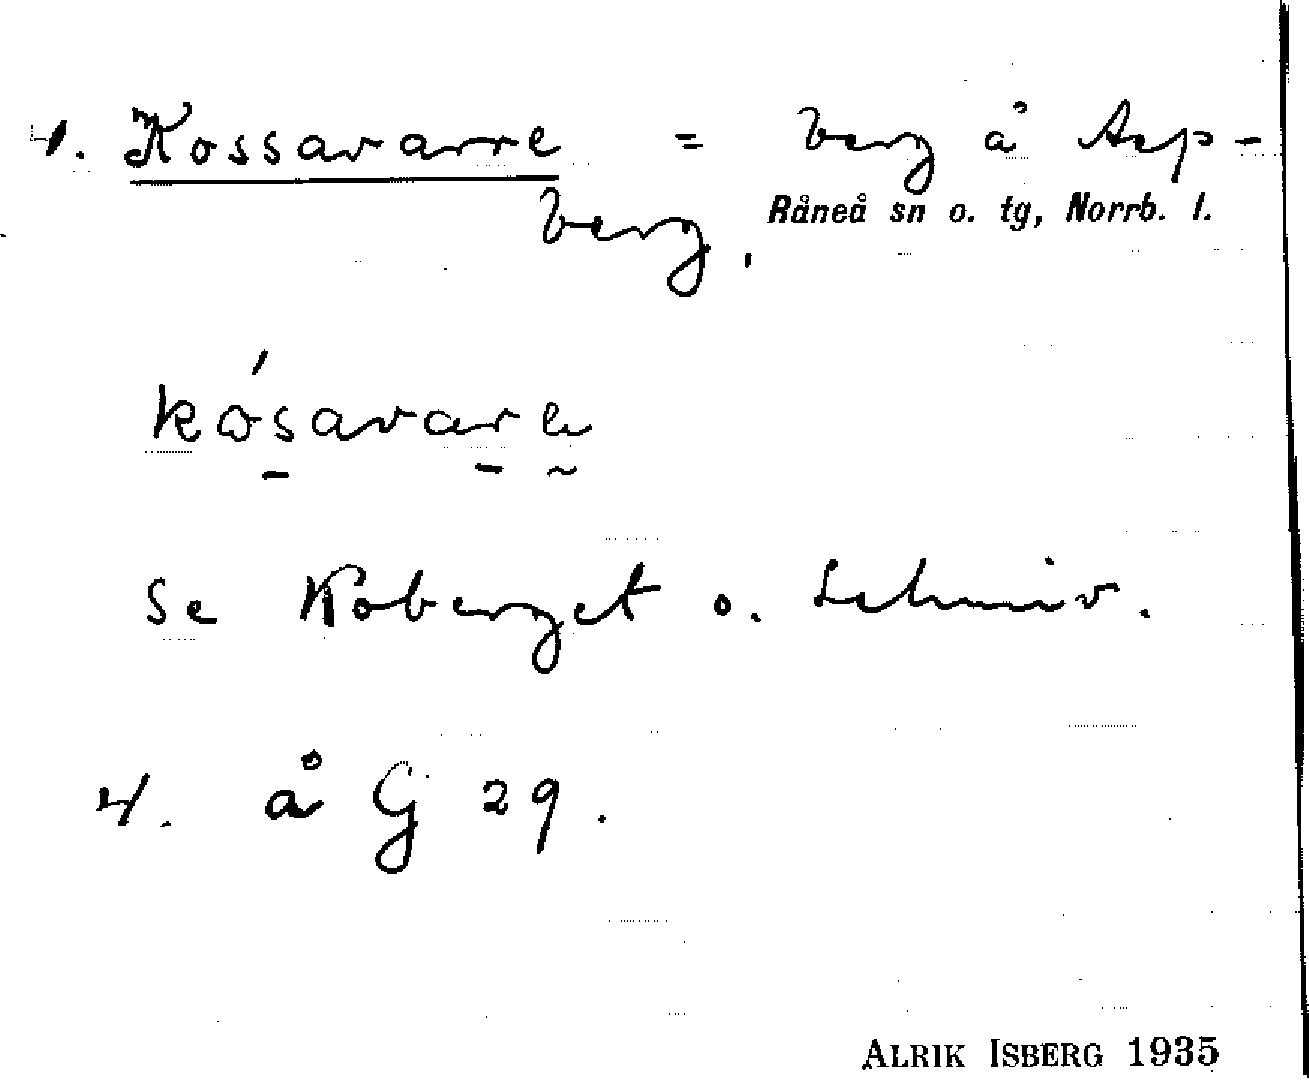 4. Kossavarre = berg å Asp-
berg. Råneå sn o. tg, Norrb. l.
kɷ́savare
Se Koberget o. Schmiv.
4. å G 29.
ALRIK ISBERG 1935